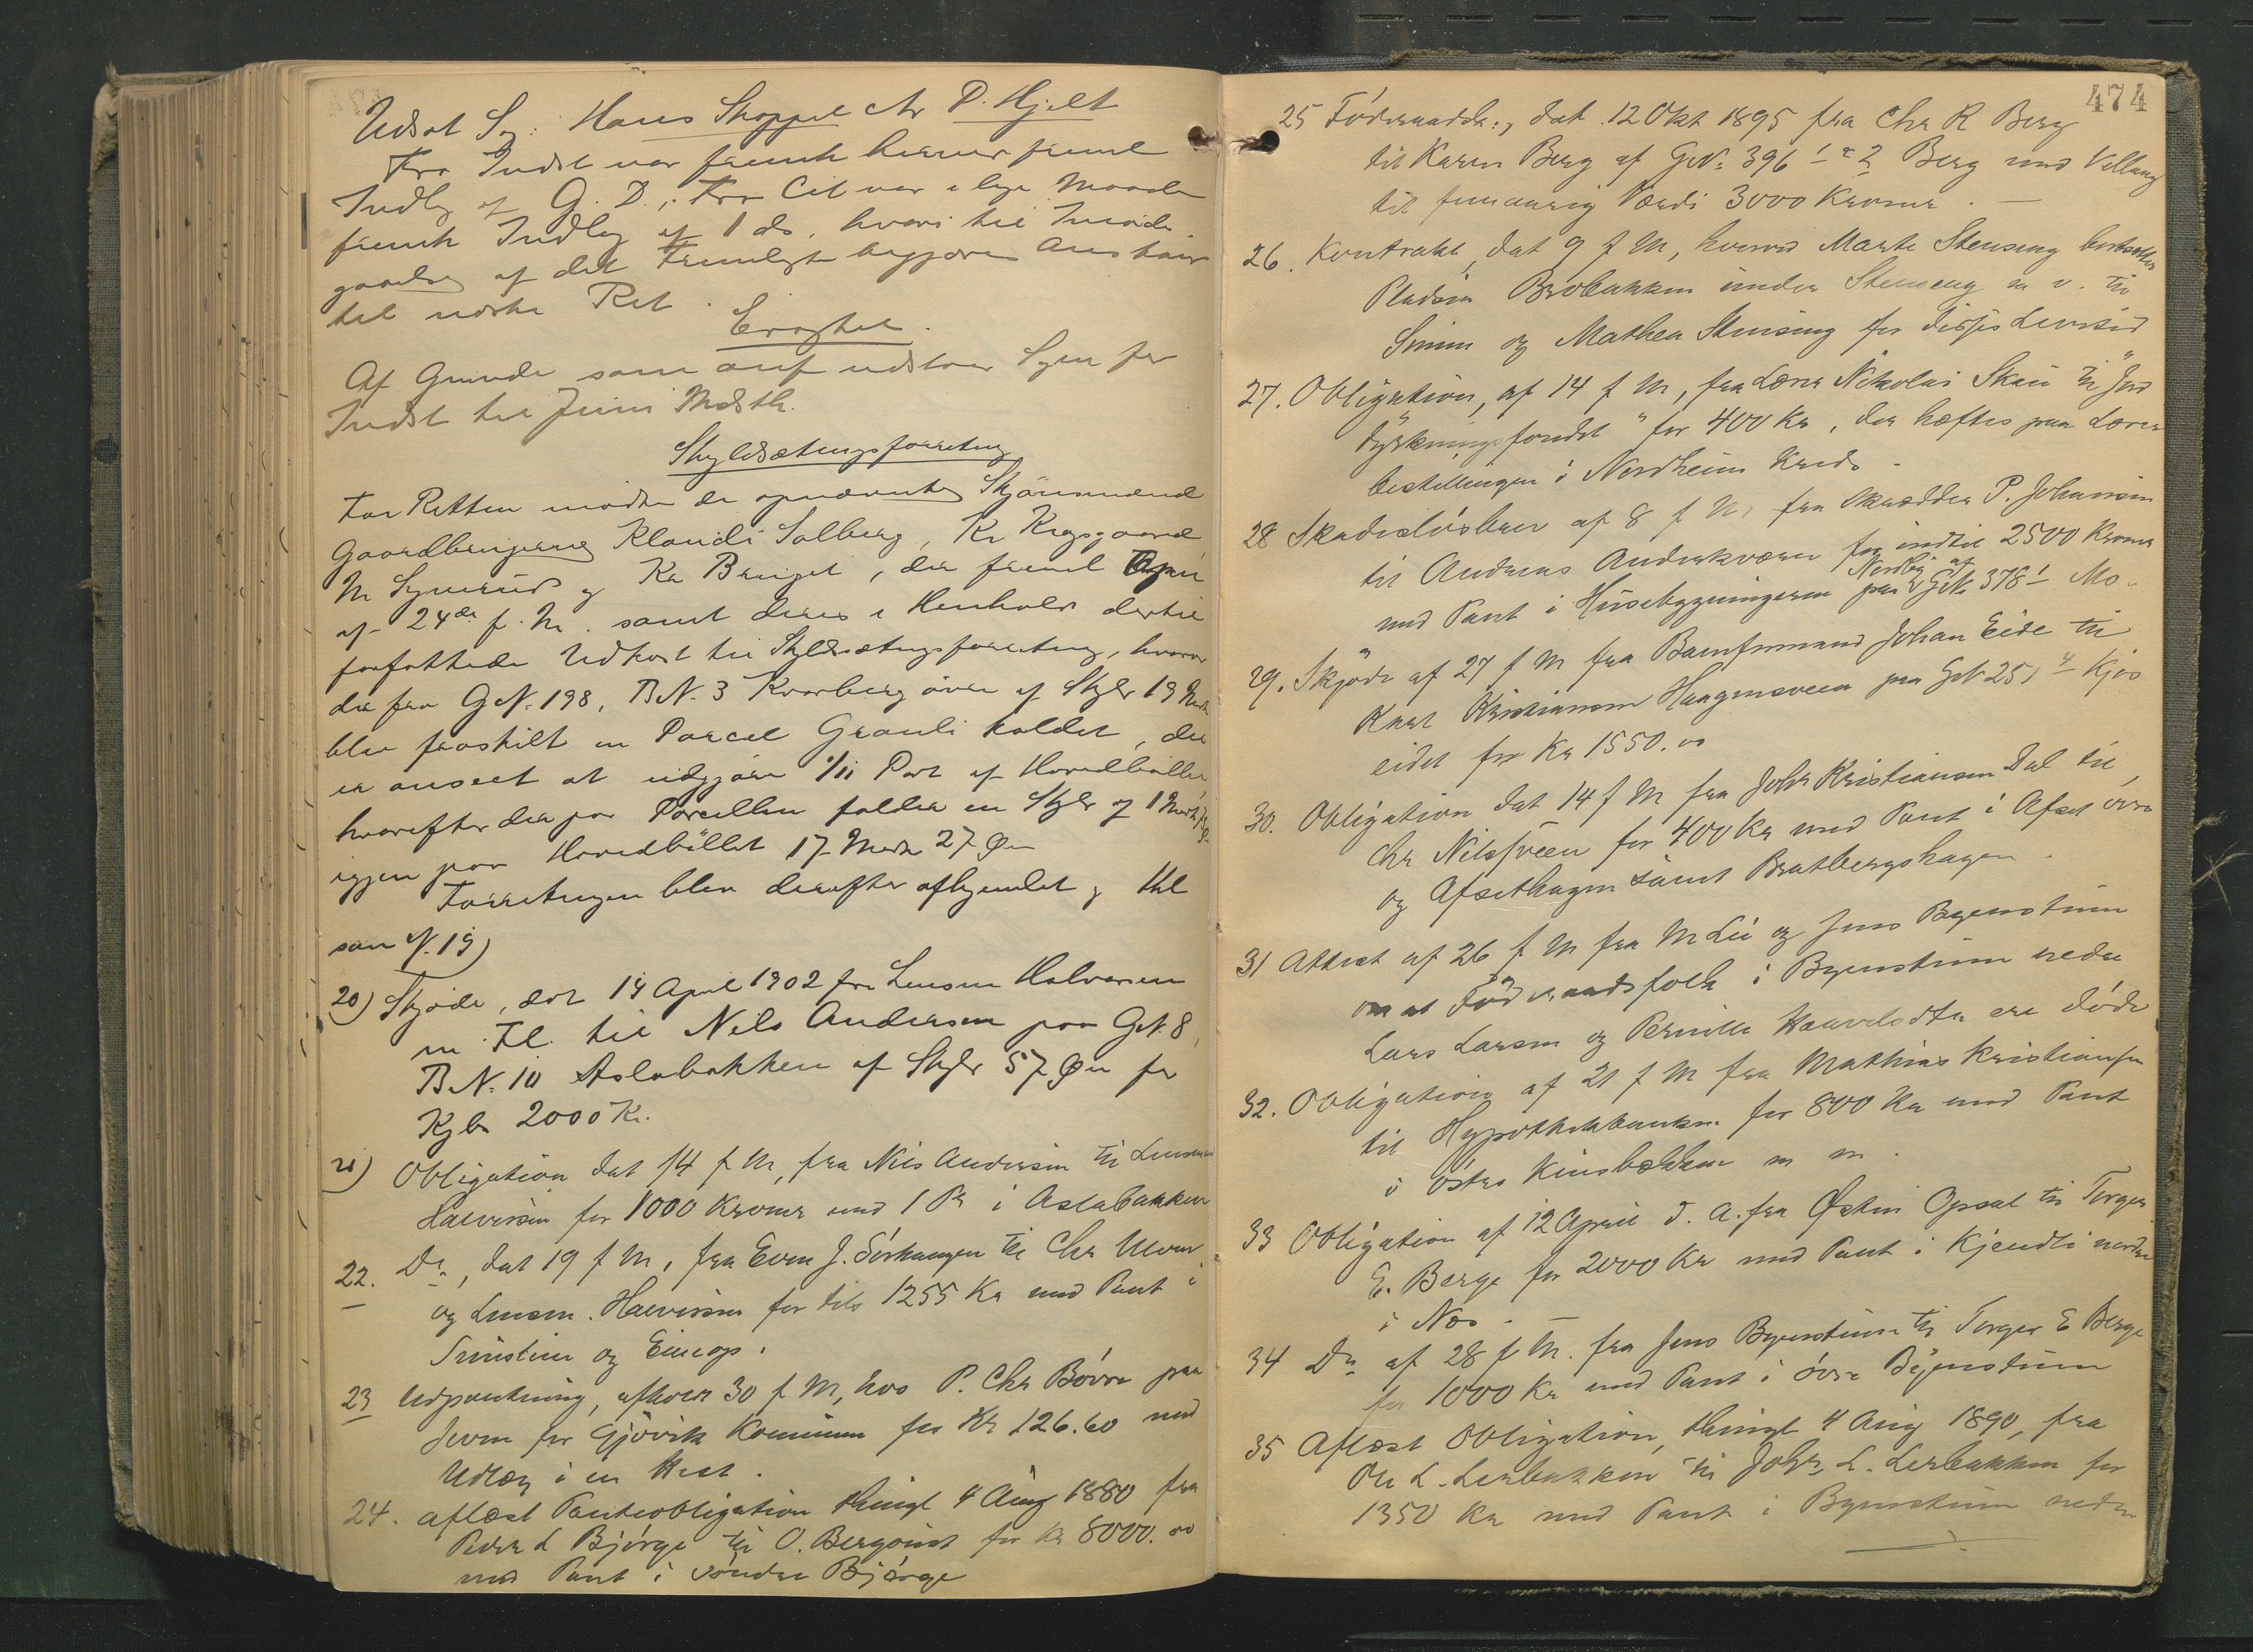 Udsat Sag: Hans Skoppel ctr P. Hjelt
For Indst var fremk herunr fremt
Indlæg af G. D., For Cit var i lige Maade
fremk Indlæg af 1 ds. hvori til Imøde
gaaelse af det Fremlagte begjæres Anstand
til næste Ret.
Eragtet.
Af Grunde som anf udstaar Sagen for
Indst til Juni Mdsth.
Skyldsætningsforretning
For Retten mødte de opnævnte Skjønsmænd
Gaardbrugerne Klaudi Solberg, Kr Krogsgaard
M Synerud og Kr Bruget, der freml Opn
af 24de f. M. samt deres i Henhold dertil
forfattede Udkast til Skyldsætningsforretning, hvorved
der fra GN. 198, BN. 3 Kvarberg øvre af Skyld 19 Mark
blev fraskilt en Parcel Granli kaldet, der
er anseet at udgjøre 1/11 Part af Hovedbøllet,
hvorefter der paa Parcellen falder en Skyld af 1 Mark 73 Ø
igjen paa Hovedbøllet 17 Mark 27 Øre
Forretningen blev derefter afhjemlet og thl
som N. 19)
20) Skjøde, dat 14 April 1902 fra Lensm Halvorsen
m. Fl. til Nels Andersen paa GN. 8,
BN. 10 Aslabakken af Skyld 57 Øre for
Kjbs 2000 Kr.
21) Obligation dat 14 f M, fra Nils Andersen til Lensmand
Halvorsen for 1000 Kroner med 1 Pr i Aslabakken
22. Do, dat 19 f M, fra Even J. Sørhaugen til Chr Ulven
og Lensm. Halvorsen for tils 1255 Kr med Pant i
Tunstun og Einegs.
23 Udpantning, afholdt 30 f M, hos P. Chr Bøvre paa
Jevne for Gjøvik Kommune for Kr 126.60 med
Udlæg i en Hest.
24. Aflæst Panteobligation thingl 4 Aug 1880 fra
Peder L Bjørge til O. Bergquist for Kr 8000.00
med Pant i søndre Bjørge
474
25 Føderaadsk:, dat. 12 Okt 1895 fra Chr R Berg
til Karen Berg af GN. 396 1 & 2 Berg med Vellang
til femaarig Værdi 3000 Kroner. —
26. Kontrakt, dat 9 f M, hvorved Marte Stenseng bortsætter
Pladsen Brobakken under Stenseng m v. til
Simen og Mathea Stenseng for disses Levetid
27. Obligation, af 14 f M, fra Lærer Nikolai Skau til "Jord
dyrkningsfondet" for 400 Kr, der hæftes paa Lærer
bestillingen i Nordheim Kreds.
28 Skadesløsbrev af 8 f M, fra Skrædder P. Johansen
til Andreas Anderkværn for indtil 2500 Kroner
med Pant i Husebygningerne paa Nordlig af GN 378 1 Mo.
29. Skjøde af 27 f M fra Banefmand Johan Eide til
Karl Kristiansen Haagensveen paa GN 251 4 Kjøs
eidet for Kr 1550.00
30. Obligation dat 14 f M fra Johs Kristiansen Dal til
Chr Nilssveen for 400 Kr med Pant i Afset øvre
og Afsethagen samt Bratbergshagen.
31 Attest af 26 f M fra M Lie og Jens Byenstuen
om at Føderaadsfolk i Byenstuen nedre
Lars Larsen og Pernille Haavelsdtr ere døde
32. Obligation af 21 f M fra Mathias Kristiansen
til Hypothekbanken for 800 Kr med Pant
i østre Kinsbækken m m.
33 Obligation af 12 April d. A. fra Østen Opsal til Torger
E. Berge for 2000 Kr med Pant i Kjendli nordre
i Nes. —
34 Do af 28 f M. fra Jens Byenstuen til Torger E Berge
for 1000 Kr med Pant i øvre Byenstuen
35 Aflæst Obligation, thingl 4 Aug 1890, fra
Ole L. Lerbakken til Johs L. Lerbakken for
1350 Kr med Pant i Byenstuen nedre